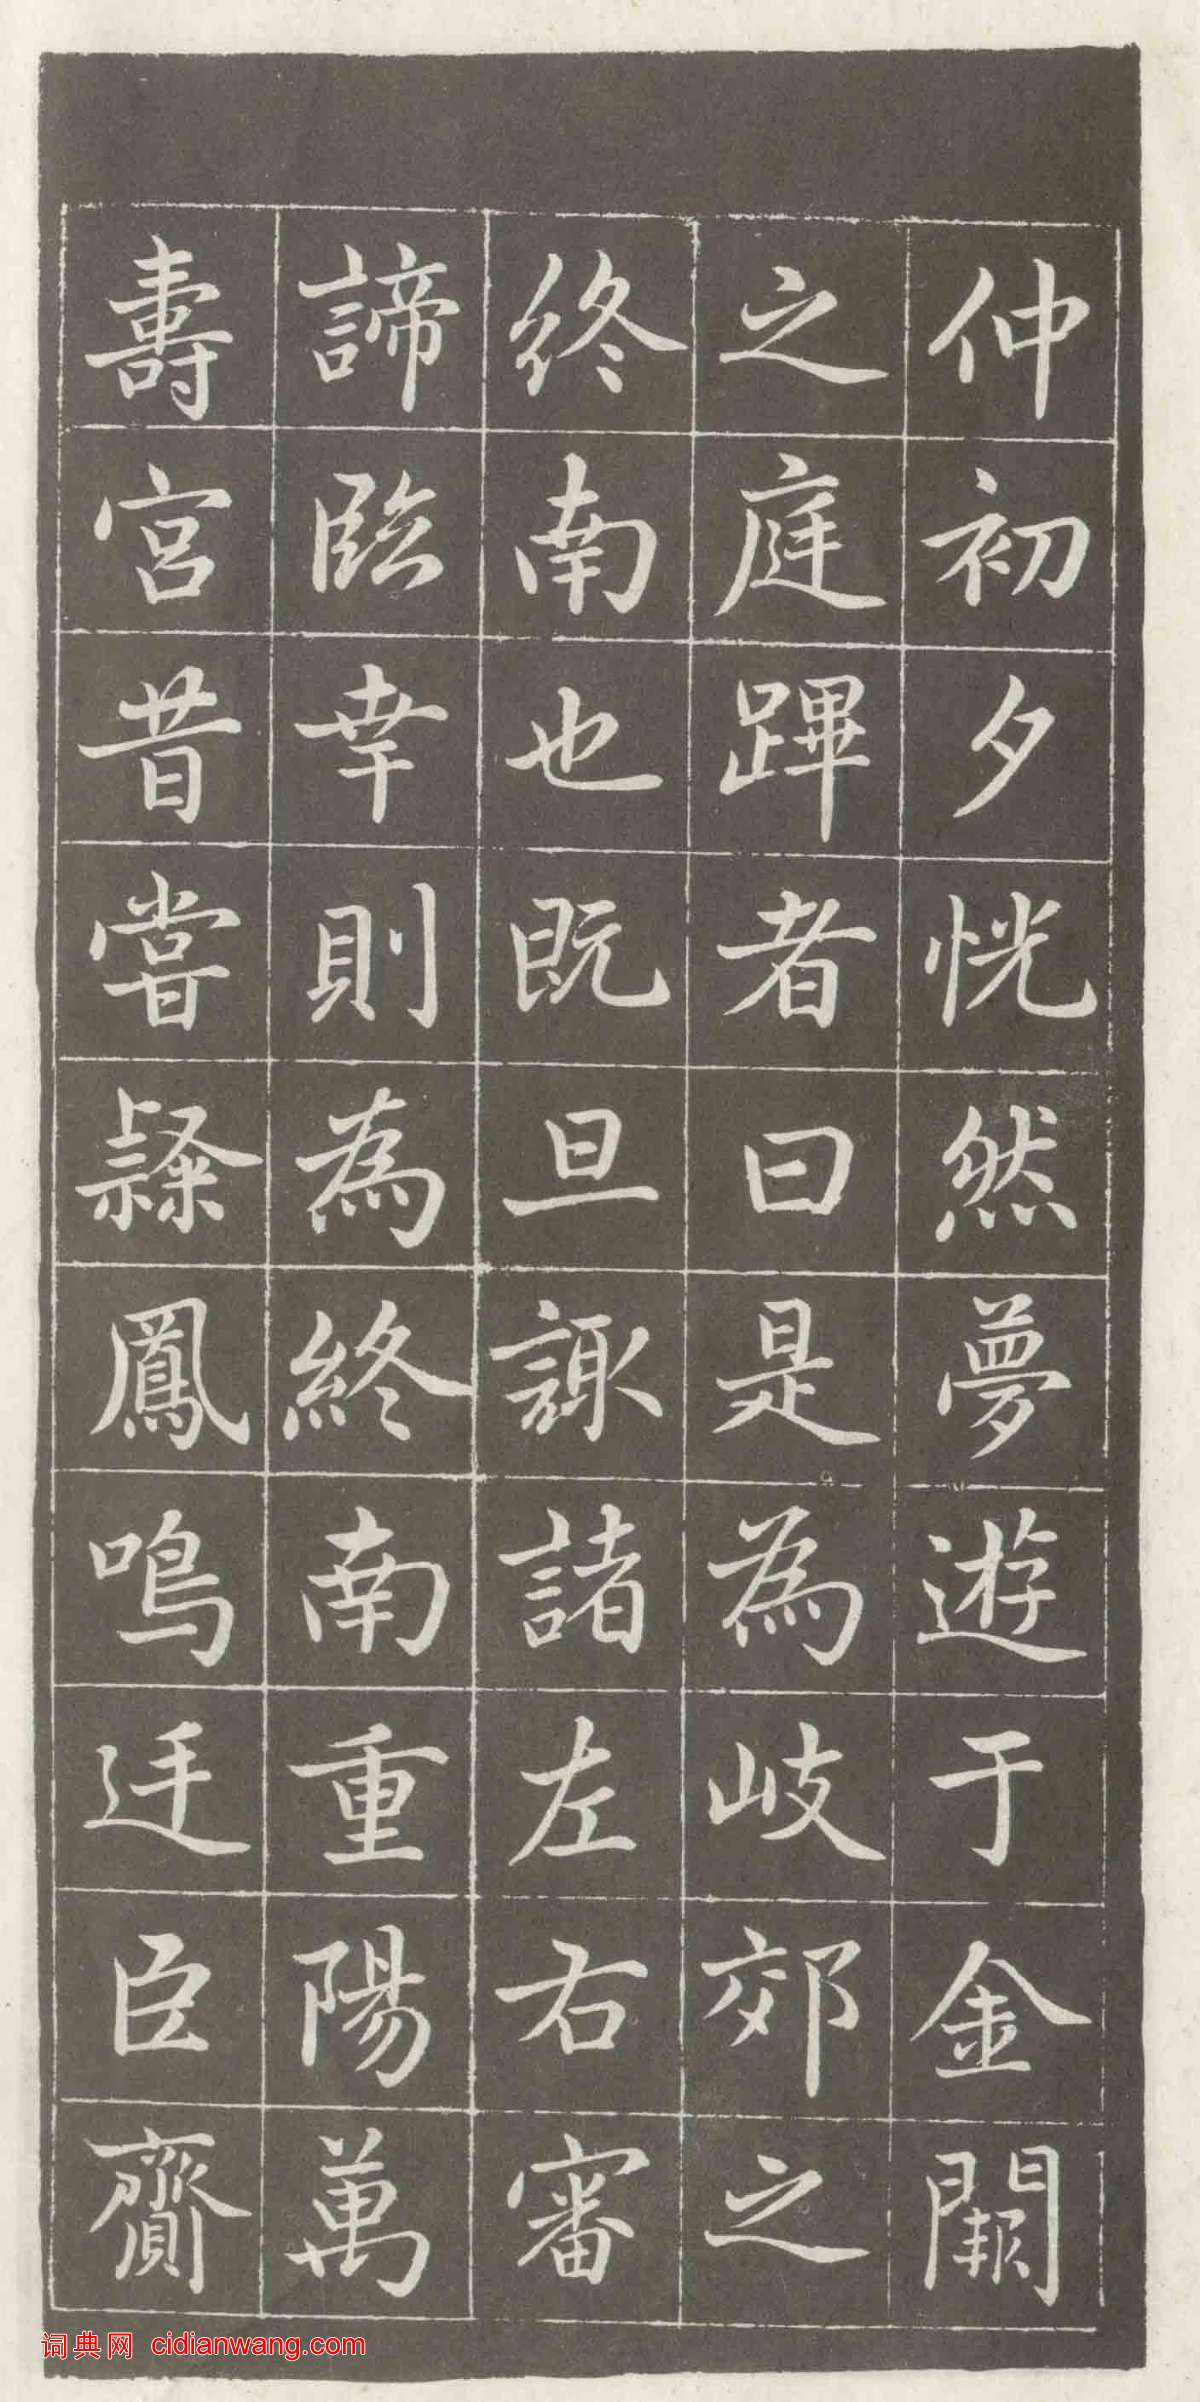 仲初夕恍然夢遊于金闕
之庭蹕者曰是為岐郊之
終南也既旦諏諸左右審
諦臨幸則為終南重陽萬
壽宮昔嘗禜鳳鳴迋臣齎
词典网 cidianwang.com